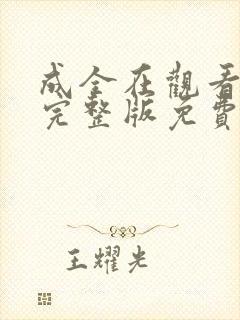 成全在觀看
完整版免費
王耀光